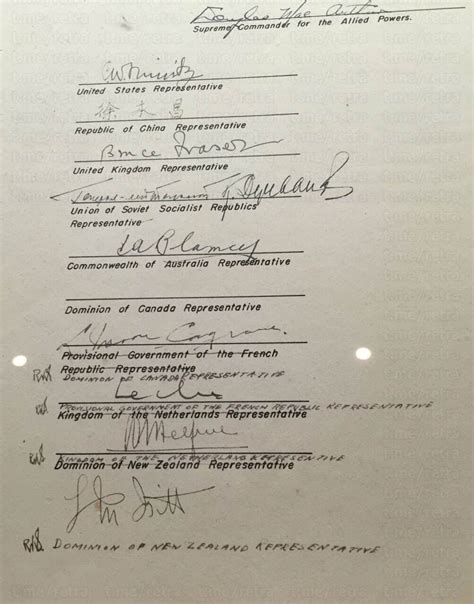 Douglas MacArthur
Supreme Commander for the Allied Powers.
C.W. Nimitz
United States Representative
徐永昌
Republic of China Representative
Bruce Fraser
United Kingdom Representative
Union of Soviet Socialist Republics
Representative
T.A. Blamey
Commonwealth of Australia Representative
Dominion of Canada Representative
L. Moore Cosgrave.
Provisional Government of the French
Republic Representative
DOMINION OF CANADA REPRESENTATIVE
Le Clerc
PROVISIONAL GOVERNMENT OF THE FRENCH REPUBLIC REPRESENTATIVE
Kingdom of the Netherlands Representative
Helfrich
KINGDOM OF THE NETHERLANDS REPRESENTATIVE
Dominion of New Zealand Representative
L M Isitt
DOMINION OF NEW ZEALAND REPRESENTATIVE